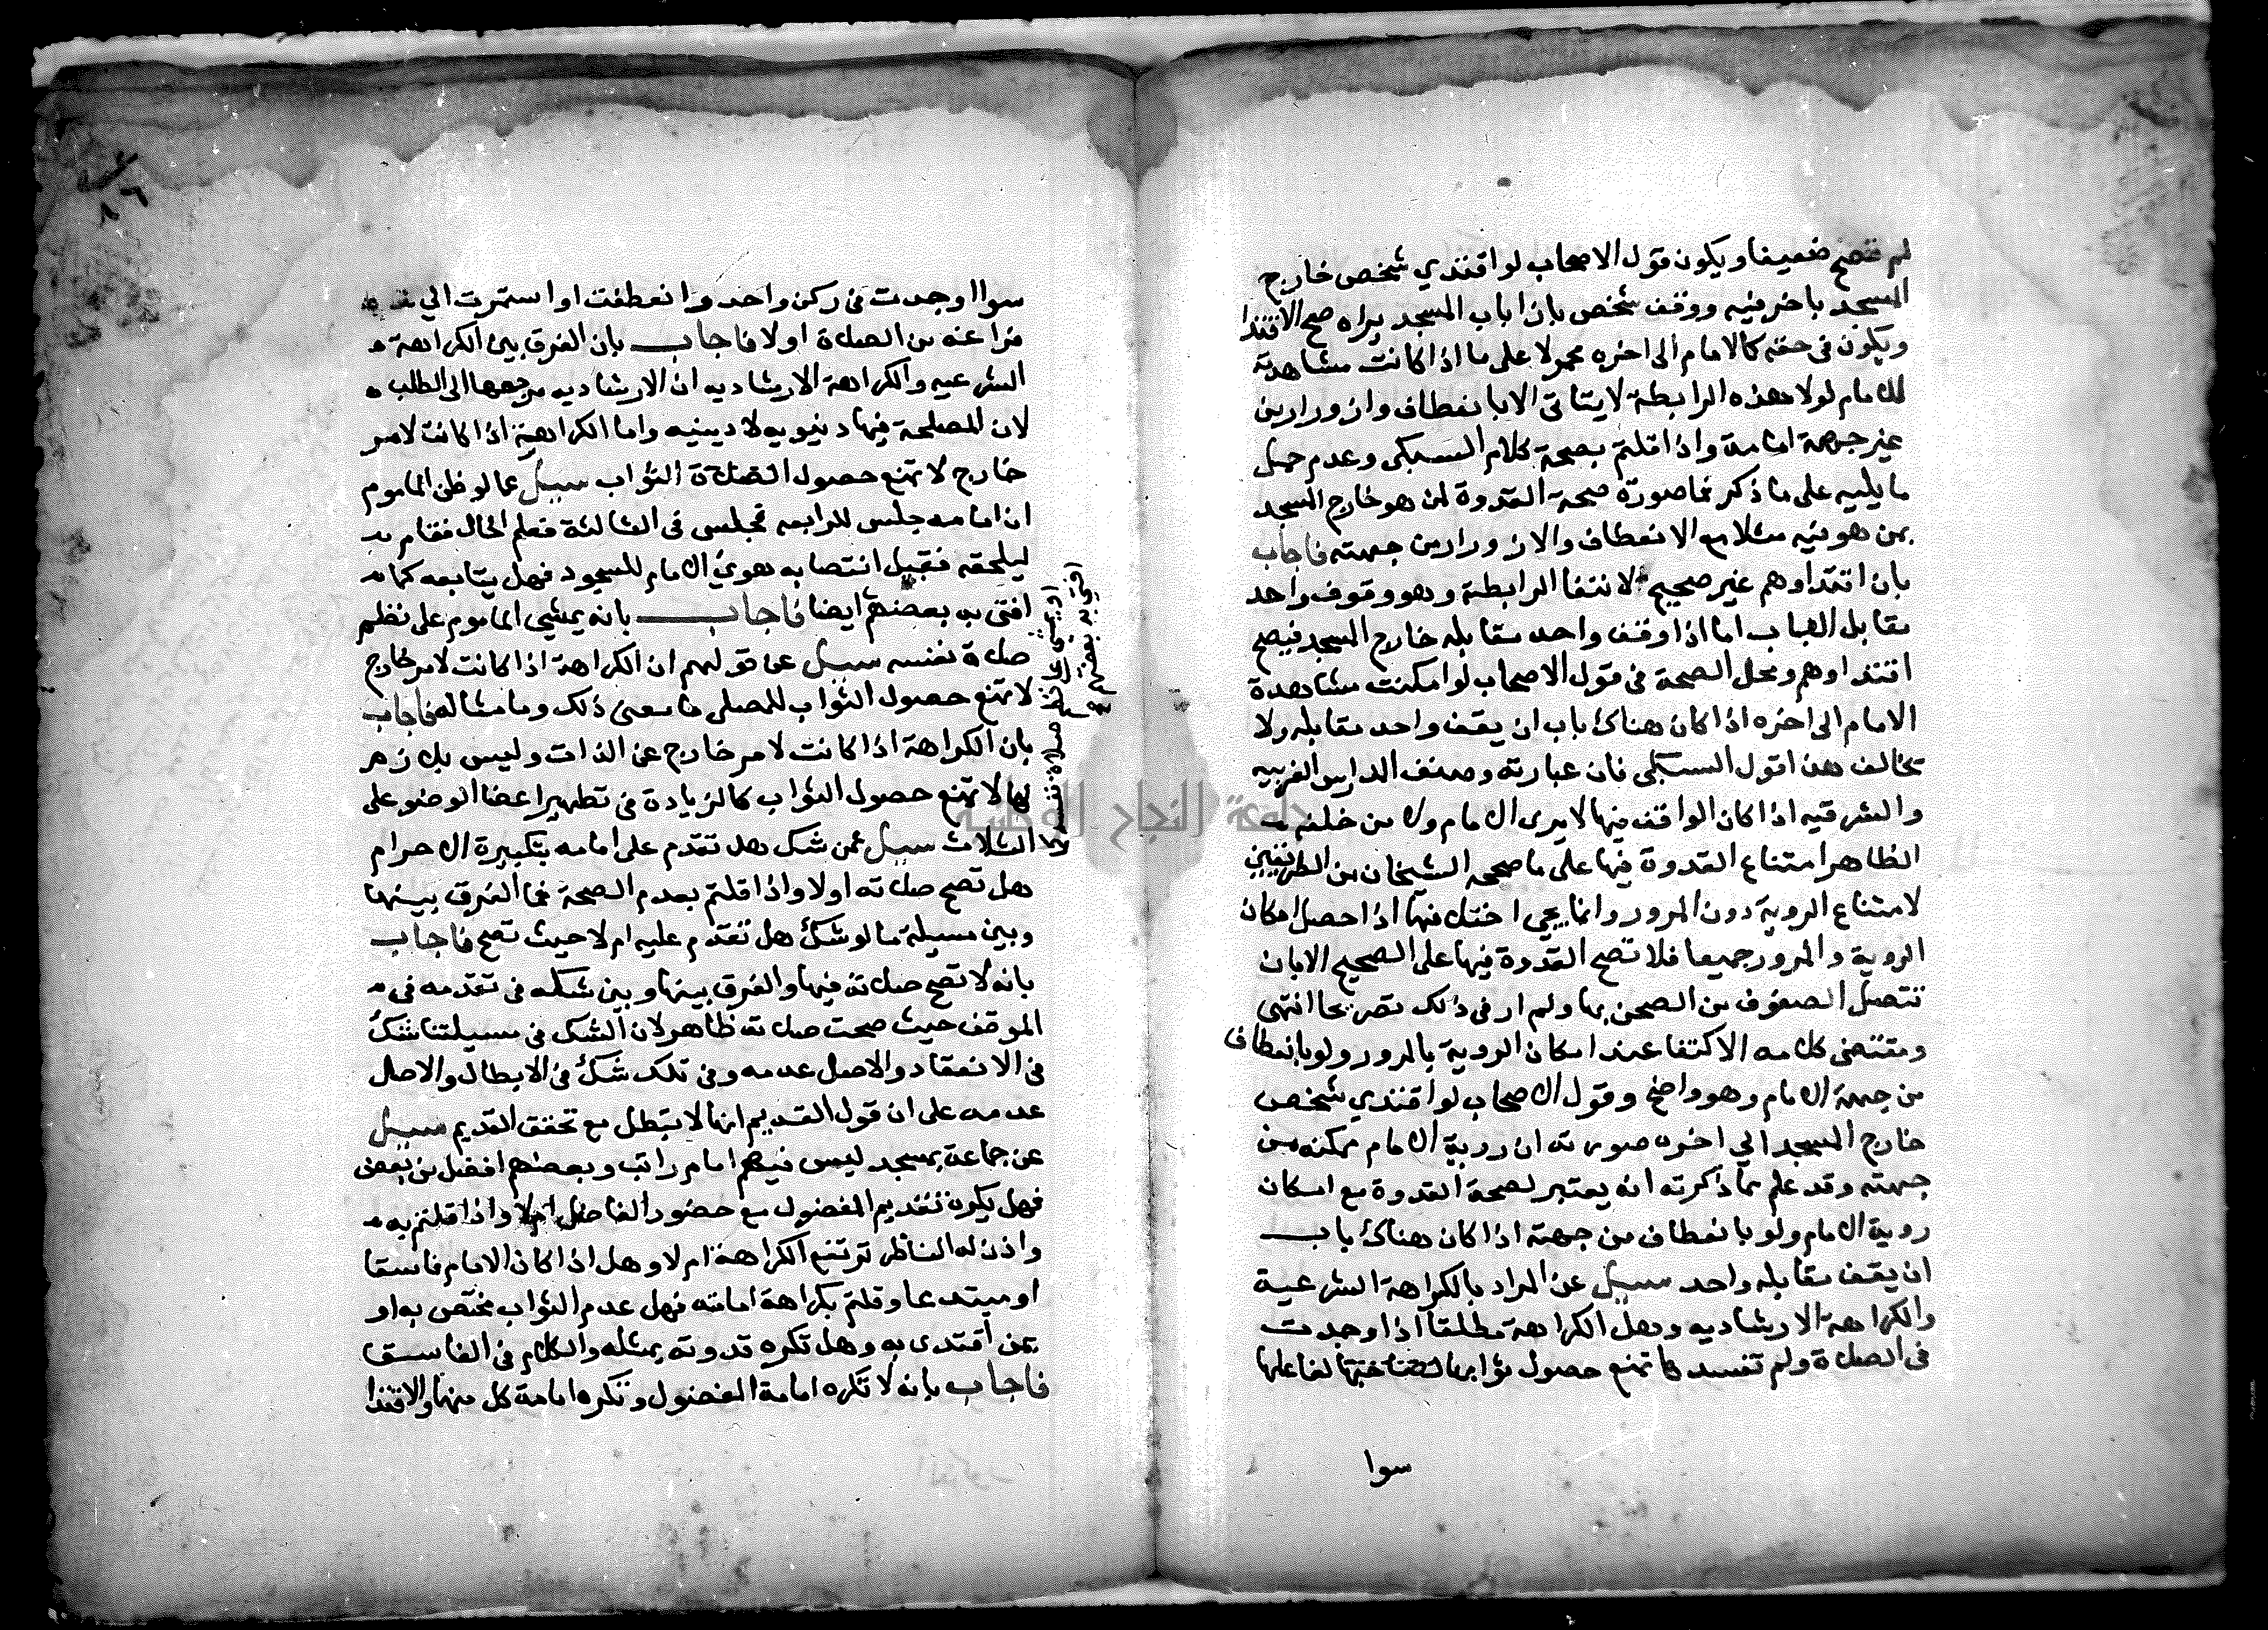 لم تتضح ضعيفا ويكون قول الاصحاب لو اقتدي شخص خارج
المسجد باخر فيه ووقف شخص بان اباب المسجد يراه صح الاقتدا
ويكون في حقه كالامام الى اخره محمولا على ما اذا كانت مشاهدته
للامام لولا هذه الرابطة لايتاتى الابانعطاف وازورار من
غير جهة امامه واذا قلتم بصحة كلام السبكى وعدم حمل
ما يليه على ما ذكر فما صورة صحة القدوة لمن هو خارج المسجد
بمن هو فيه مثلا مع الانعطاف والازورار من جهته فاجاب
بان اقتداوهم غير صحيح لانتفا الرابطة وهو وقوف واحد
مقابل الباب اما اذا وقف واحد مقابله خارج المسجد فيصح
اقتداوهم ومحل الصحة فى قول الاصحاب لو امكنت مشاهدة
الامام الى اخره اذا كان هناك باب ان يقف واحد مقابله ولا
يخالف هذا قول السبكى فان عبارته وصنف المدارس الغربيه
والشرقيه اذا كان الواقف فيها لا يرى الامام ولا من خلفه
الظاهر امتناع القدوة فيها على ما صححه الشيخان من الطريقين
لامتناع الروية دون المرور وانما يجي اختلافها اذا حصل امكان
الروية والمرور جميعا فلا تصح القدوة فيها على الصحيح الابان
تتصل الصفوف من الصحن بها ولم ار في ذلك تصريحا انتهى
ومقتضى كلامه الاكتفا عند امكان الروية بالمرور ولو بانعطاف
من جهة الامام وهو واضح وقول الاصحاب لو اقتدي شخص
خارج المسجد الي اخره صورته ان روية الامام ممكنه من
جهته وقد علم مما ذكرته انه يعتبر لصحة القدوة مع امكان
روية الامام ولو بانعطاف من جهته اذا كان هناك باب
ان يقف مقابله واحد سيل عن المراد بالكراهة الشرعية
والكراهة الارشاديه وهل الكراهة مطلقا اذا وجدت
فى الصلاة ولم تفسدها تمنع حصول ثوابها لفاعلها
سوا
سوا اوجدت فى ركن واحد وانعطفت او استمرت الي
فراغه من الصلاة اولا فاجاب بان الفرق بين الكراهة
الشرعيه والكراهة الارشاديه ان الارشاديه مرجعها الى الطلب
لان المصلحة فيها دنيويه لا دينيه واما الكراهة اذا كانت لامر
خارج لا تمنع حصول الصلاة الثواب سيل عما لو ظن الماموم
ان امامه جلس للرابعه فجلس فى الثالثة فعلم الحال فقام
ليلحقه فقبل انتصابه هوي الامام للسجود فهل يتابعه كما
افتى به بعضهم ايضا فاجاب بانه يمشي الماموم على نظم
صلاة نفسه سيل عن قولهم ان الكراهة اذا كانت لامر خارج
لا تمنع حصول الثواب للمصلى ما معنى ذلك وما مثاله فاجاب
بان الكراهة اذا كانت لامر خارج عن الذات وليس بلازم
لها لا تمنع حصول الثواب كالزيادة فى تطهير اعضا الوضو على
الثلاث سيل عمن شك هل تقدم على امامه بتكبيرة الاحرام
هل تصح صلاته اولا واذا قلتم بعدم الصحة فما الفرق بينها
وبين مسيلة ما لو شك هل تقدم عليه ام لا حيث تصح فاجاب
بانه لا تصح صلاته فيها والفرق بينها وبين شكه فى تقدمه فى
الموقف حيث صحت صلاته ظاهر لان الشك فى مسيلتنا شك
فى الانعقاد والاصل عدمه وفى تلك شك فى الابطال والاصل
عدمه على ان قول القديم انها لا تبطل مع تحقق التقديم سيل
عن جماعة بمسجد ليس فيهم امام راتب وبعضهم افضل من بعض
فهل يكره تقديم المفضول مع حضور الفاضل ام لا واذا قلتم به
واذن له الناظر ترتفع الكراهة ام لا وهل اذا كان الامام فاسقا
او مبتدعا وقلتم بكراهة امامته فهل عدم الثواب مختص به او
بمن اقتدى به وهل تكره قدوته بمثله والكلام فى الفاسق
فاجاب بانه لا تكره امامة المفضول وتكره امامة كل منهما والاقتدا
او يمشي على نظم صلاة نفسه كما
افتى به بعضهم
جامعة النجاح الوطنية